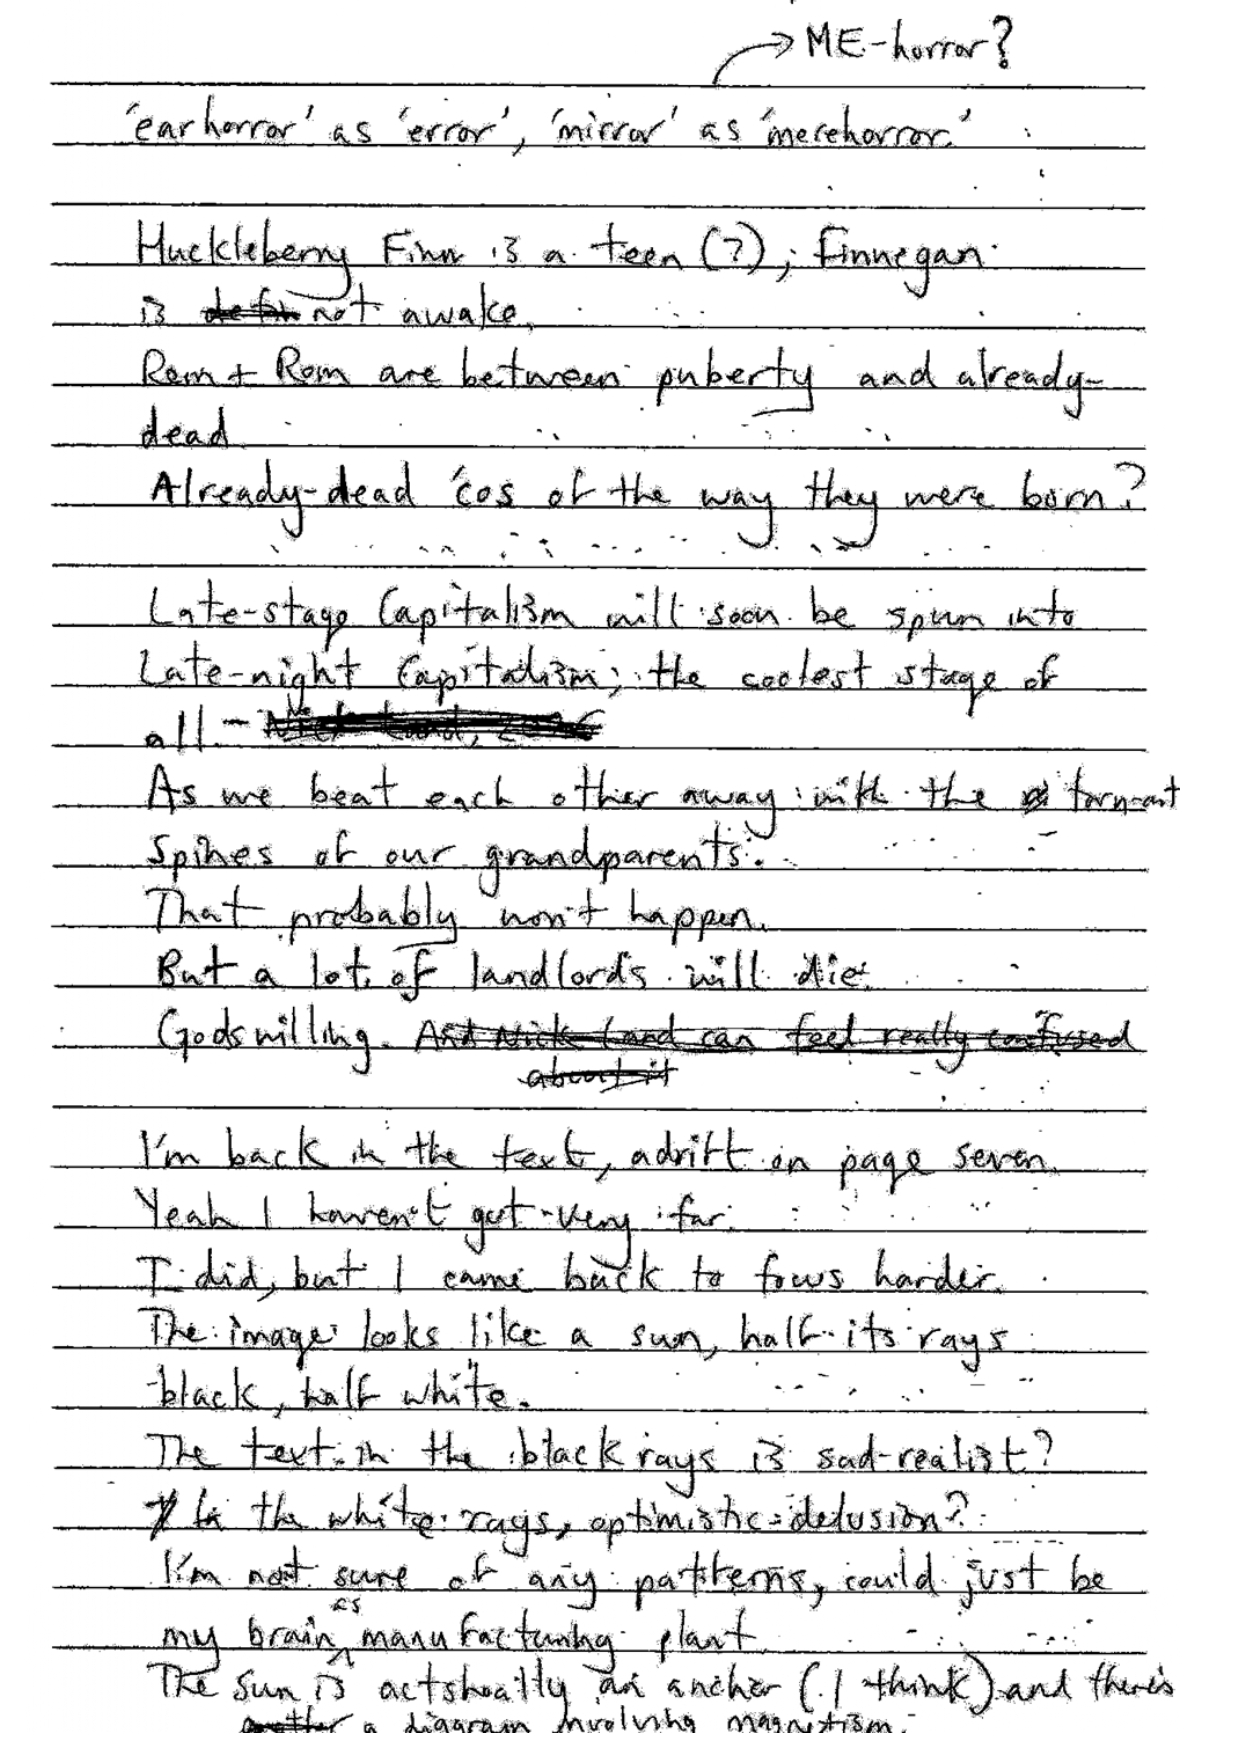 → ME-horror?
'earhorror' as 'error', 'mirror' as 'merehorror.'
Huckleberry Finn is a teen (?); Finnegan
is not awake.
Rem + Rom are between puberty and already-
dead
Already-dead 'cos of the way they were born?
Late-stage Capitalism will soon be spun into
Late-night Capitalism; the coolest stage of
all -
As we beat each other away with the torn-out
Spines of our grandparents.
That probably won't happen.
But a lot of landlords will die.
Godswilling. And Nick Land can feel really confused
about it
I'm back in the text, adrift on page seven.
Yeah I haven't got very far.
I did, but I came back to focus harder.
The image looks like a sun, half its rays
black, half white.
The text in the black rays is sad-realist?
In the white rays, optimistic-delusion?
I'm not sure of any patterns, could just be
my brain as manufacturing plant
The Sun is actsheatly an anchor (I think) and there's
a diagram involving magnetism.